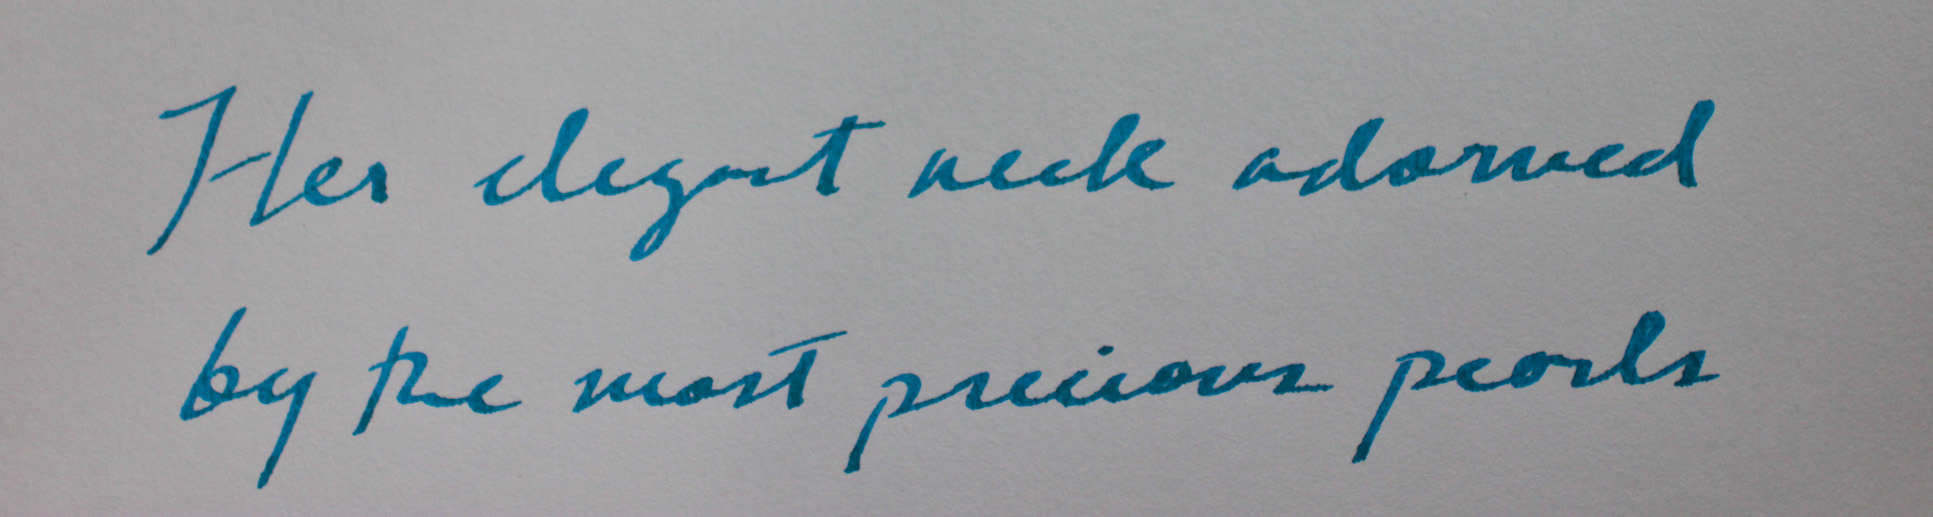 Her elegant neck adorned
by the most precious pearls